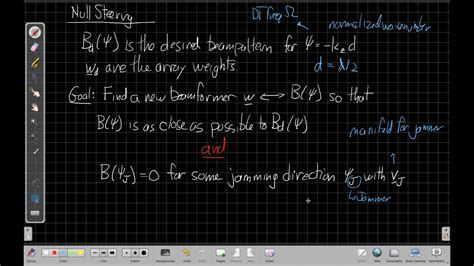 Null Steering
DT Freq Ω
normalized wavenumber
B_d(ψ) is the desired beampattern for ψ = -k_z d
w_d are the array weights
d = λ/2
Goal: Find a new beamformer w ⟷ B(ψ) so that
B(ψ) is as close as possible to B_d(ψ)
manifold for jammer
and
B(ψ_J) = 0 for some jamming direction ψ_J with v_J
↳ Jammer